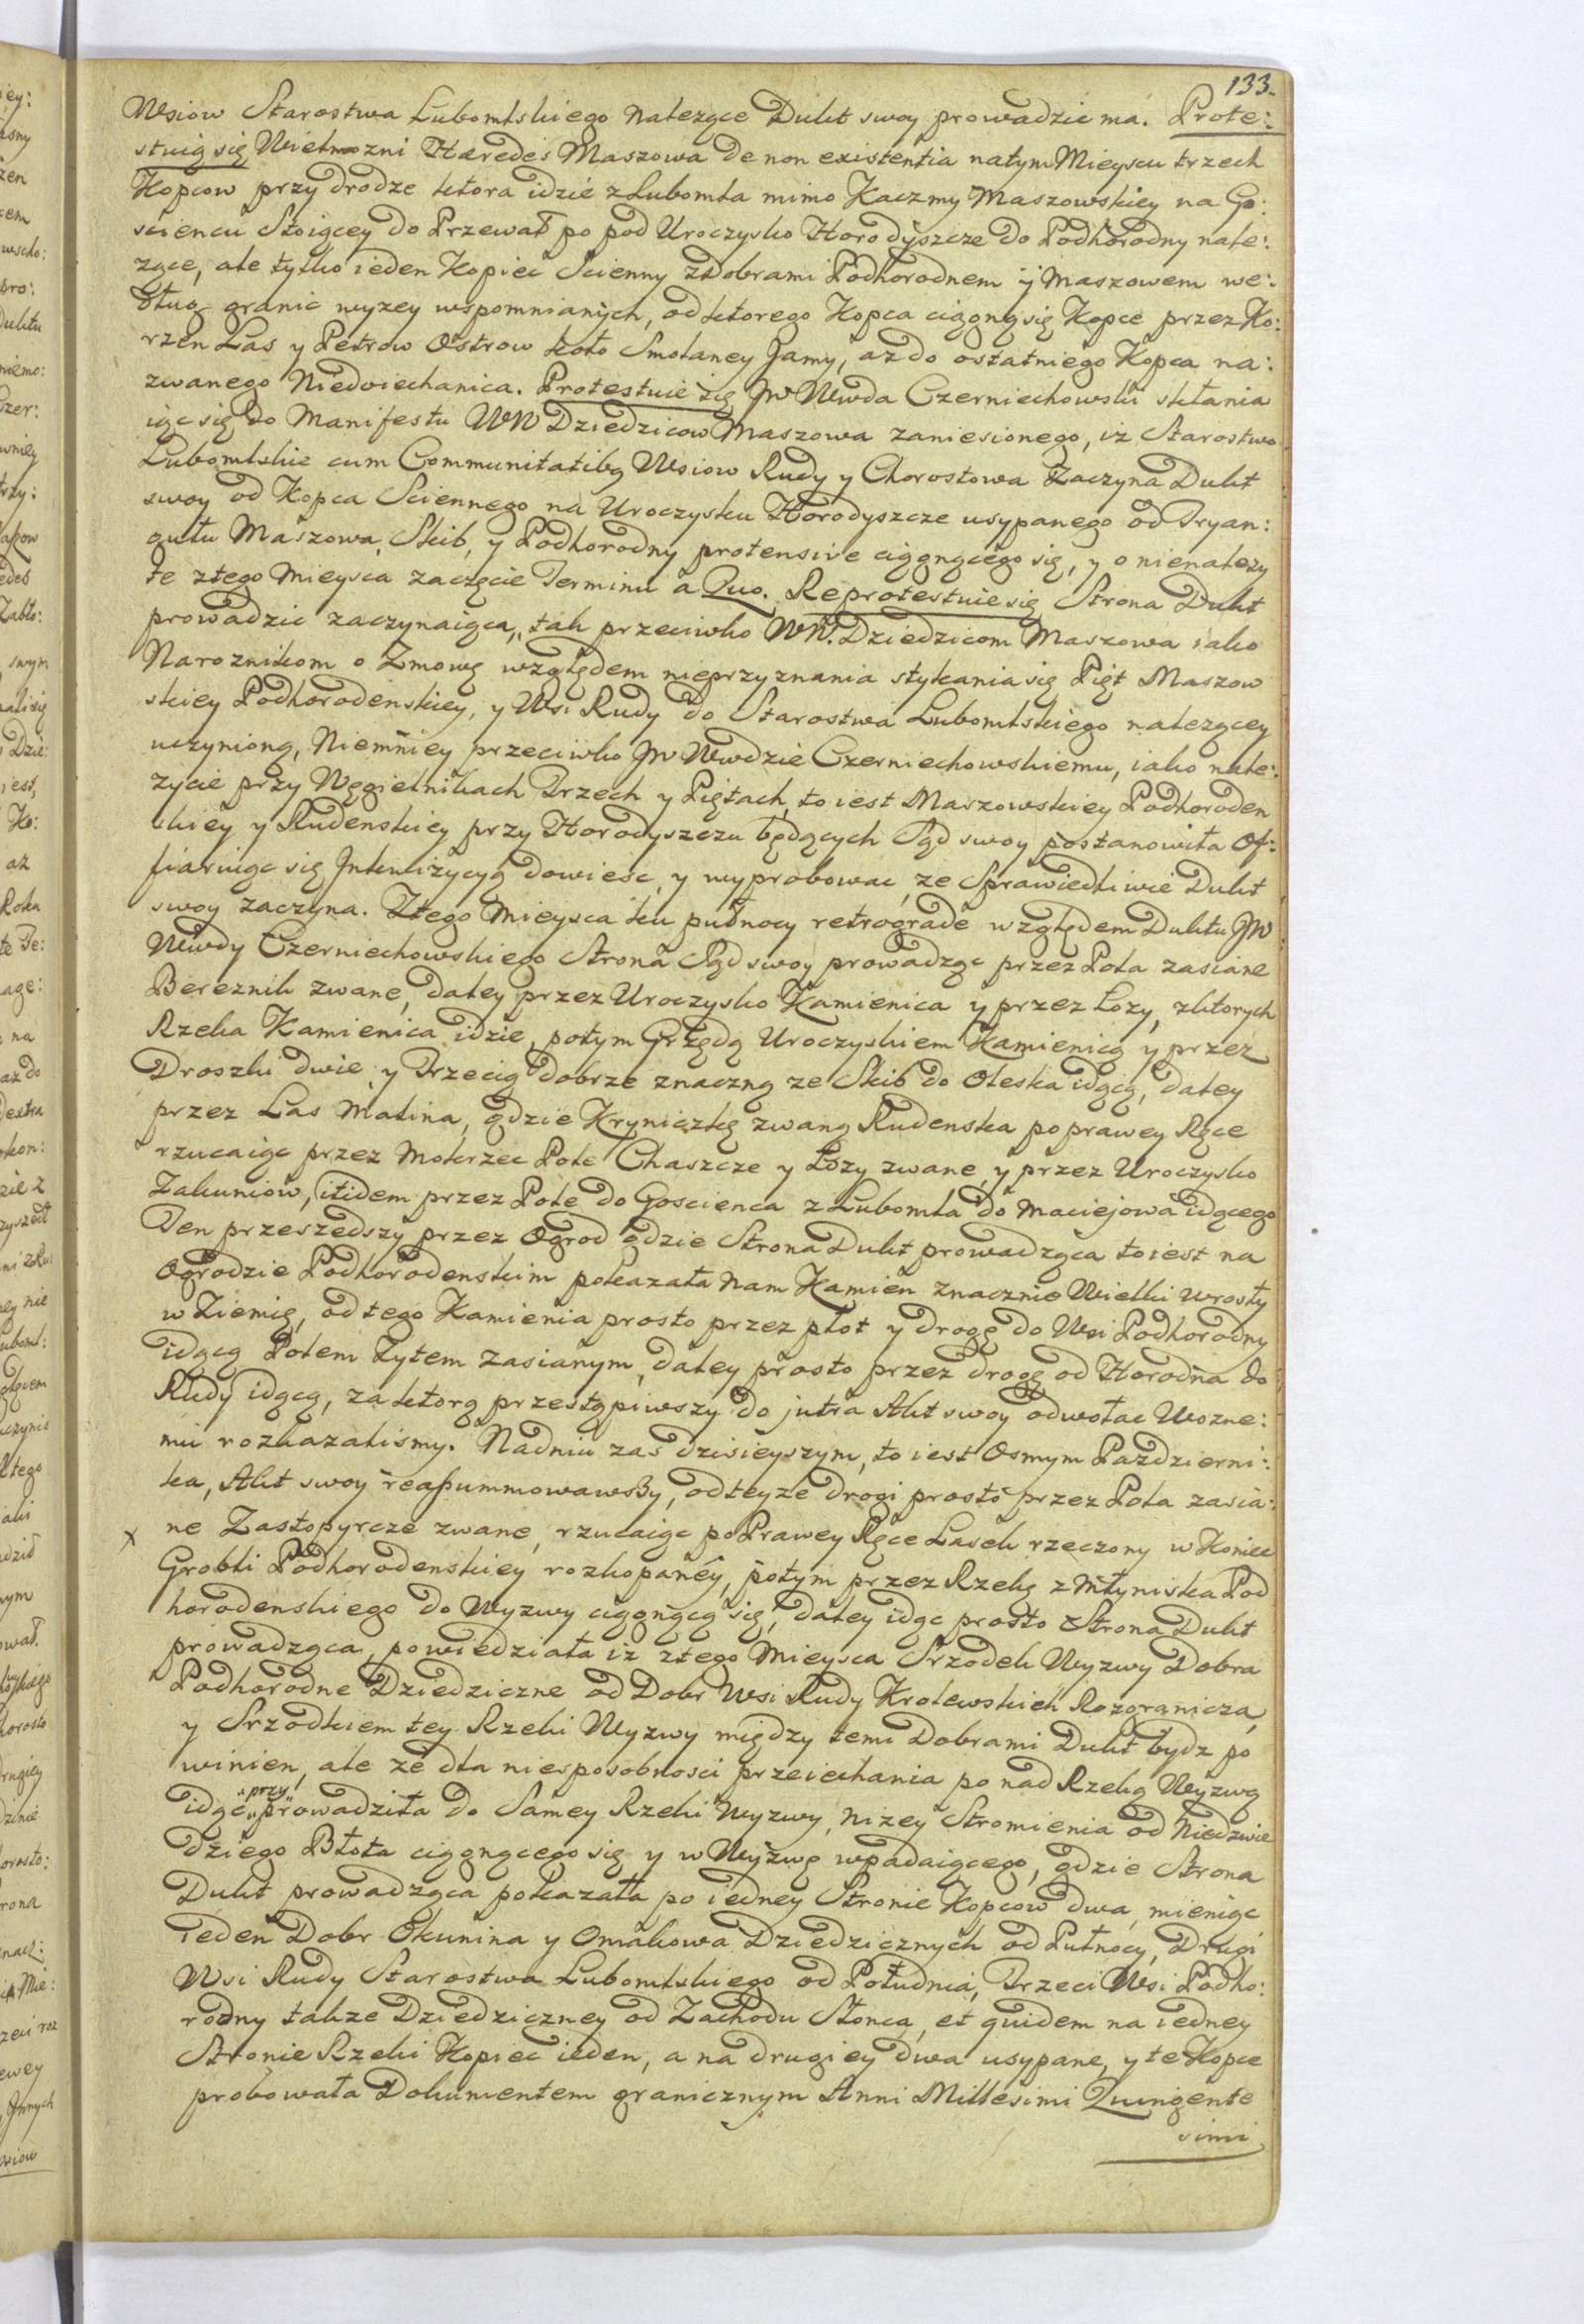 133.
Wsiow Starostwa Lubomlskiego należące Dukt swoy prowadzić ma. Prote:
stuią się Wielmozni Hæredes Maszowa de non existentia natym Mieyscu trzech
Kopcow przy drodze ktora idzie z Lubomla mimo Kaczmy Maszowskiey na Go:
scieńcu Stoiącey do Przewał po pod Uroczysko Horodyszcze do Podhorodny nale:
zące, ale tylko ieden Kopiec Scienny z Dobrami Podhorodnem y Maszowem we:
dług granic wyzey wspomnianych, od ktorego Kopca ciągną się Kopce przez Ko:
rzen Las y Petrow Ostrow koło Smolaney Jamy, az do ostatniego Kopca na:
zwanego Niedwiechanica. Protestuie się JW Wwda Czerniechowski skłania
iąc się do Manifestu WW Dziedzicow Maszowa zaniesionego, iż Starostwo
Lubomlskie cum Communitatibg Wsiow Rudy y Chorostowa Zaczyna Dukt
swoy od Kopca Sciennego na Uroczysku Horodyszcze usypanego od Tryan:
gułu Maszowa, Skib, y Podhorodny protensive ciągnącego się, y o nienalezy
te z tego Mieysca zaczęcie Terminu a Quo. Reprotestuie się Strona Dukt
prowadzic zaczynaiąca, tak przeciwko WW. Dziedzicom Maszowa iako
Naroznikom o Zmowę względem nieprzyznania stykania się Pięt Maszow
skiey Podhorodenskiey, y Wsi Rudy do Starostwa Lubomlskiego nalezącey
uczynioną, Niemniey przeciwko JW Wwdzie Czerniechowskiemu, iako nale:
zycie przy Węgielnikach Trzech y Piętach, to iest Maszowskiey Podhoroden
skiey y Rudenskiey przy Horodyszczu będących Sąd swoy postanowiła Of:
fiaruiąc się Inkwizycyą dowieść, y wyprobować, ze Sprawiedliwie Dukt
swoy zaczyna. Ztego Mieysca ku pułnocy retrograde względem Duktu JW
Wwdy Czerniechowskiego Strona Sąd swoy prowadząc przez Pola zasiane
Bereznik zwane, daley przez Uroczysko Kamienica y przez Łozy, zktorych
Rzeka Kamienica idzie, potym Grzędą Uroczyskiem Kamienicą y przez
Drozki dwie y Trzecią dobrze znaczną ze Skib do Oleska idącą, daley
przez Las Malina, gdzie Kryniczkę zwaną Rudenska po prawey Ręce
rzucaiąc przez Mokrzec Pole Chaszcze y Łozy zwane, y przez Uroczysko
Zakuniow, itidem przez Pole do Goscienca z Lubomla do Maciejowa idącego
Ten przeszedszy przez Ogrod gdzie Strona Dukt prowadząca toiest na
Ogrodzie Podhorodenskim pokazała nam Kamień znacznie Wielki wrosły
w Ziemię, od tego Kamienia prosto przez płot y drogę do Wsi Podhorodny
idącą Polem Zytem zasianym, daley prosto przez drogę od Horodna do
Rudy idącą, za ktorą przestąpiwszy do jutra Akt swoy odwołac Wozne:
mu rozkazalismy. Nadniu zas dzisieyszym, to iest Osmym Pazdzierni:
ka, Akt swoy reaßummowawßy, od teyze drogi prosto przez Pola zasia:
x ne Zastopyrcze zwane, rzucaiąc po Prawey Ręce Lasek rzeczony w Koniec
Grobli Podhorodenskiey rozkopaney, potym przez Rzekę z Młyniska Pod
horodenskiego do Wyzwy ciągnącą się, daley idąc prosto Strona Dukt
prowadząca, powiedziała iz ztego Mieysca Srzodek Wyzwy Dobra
Podhorodne Dziedziczne od Dobr Wsi Rudy Krolewskich Rozgranicza,
y Srzodkiem tey Rzeki Wyzwy między temi Dobrami Dukt bydz po
winien, ale ze dla niesposobnosci przeiechania po nad Rzekę Wyzwę
idąc "przy" prowadziła do Samey Rzeki Wyzwy, nizey Stromienia od Niedzwie
dziego Błota ciągnącego się y w Wyzwę wpadaiącego, gdzie Strona
Dukt prowadząca pokazała po iedney Stronie Kopcow dwa, mieniąc
ieden Dobr Okunina y Omakowa Dziedzicznych od Pułnocy, Drugi
Wsi Rudy Starostwa Lubomlskiego od Południa, Trzeci Wsi Podho:
rodny takze Dziedziczney od Zachodu Słonca, et quidem na iedney
Stronie Rzeki Kopiec ieden, a na drugiey dwa usypane, y te Kopce
probowała Dokumentem granicznym Anni Millesimi Quingente
simi